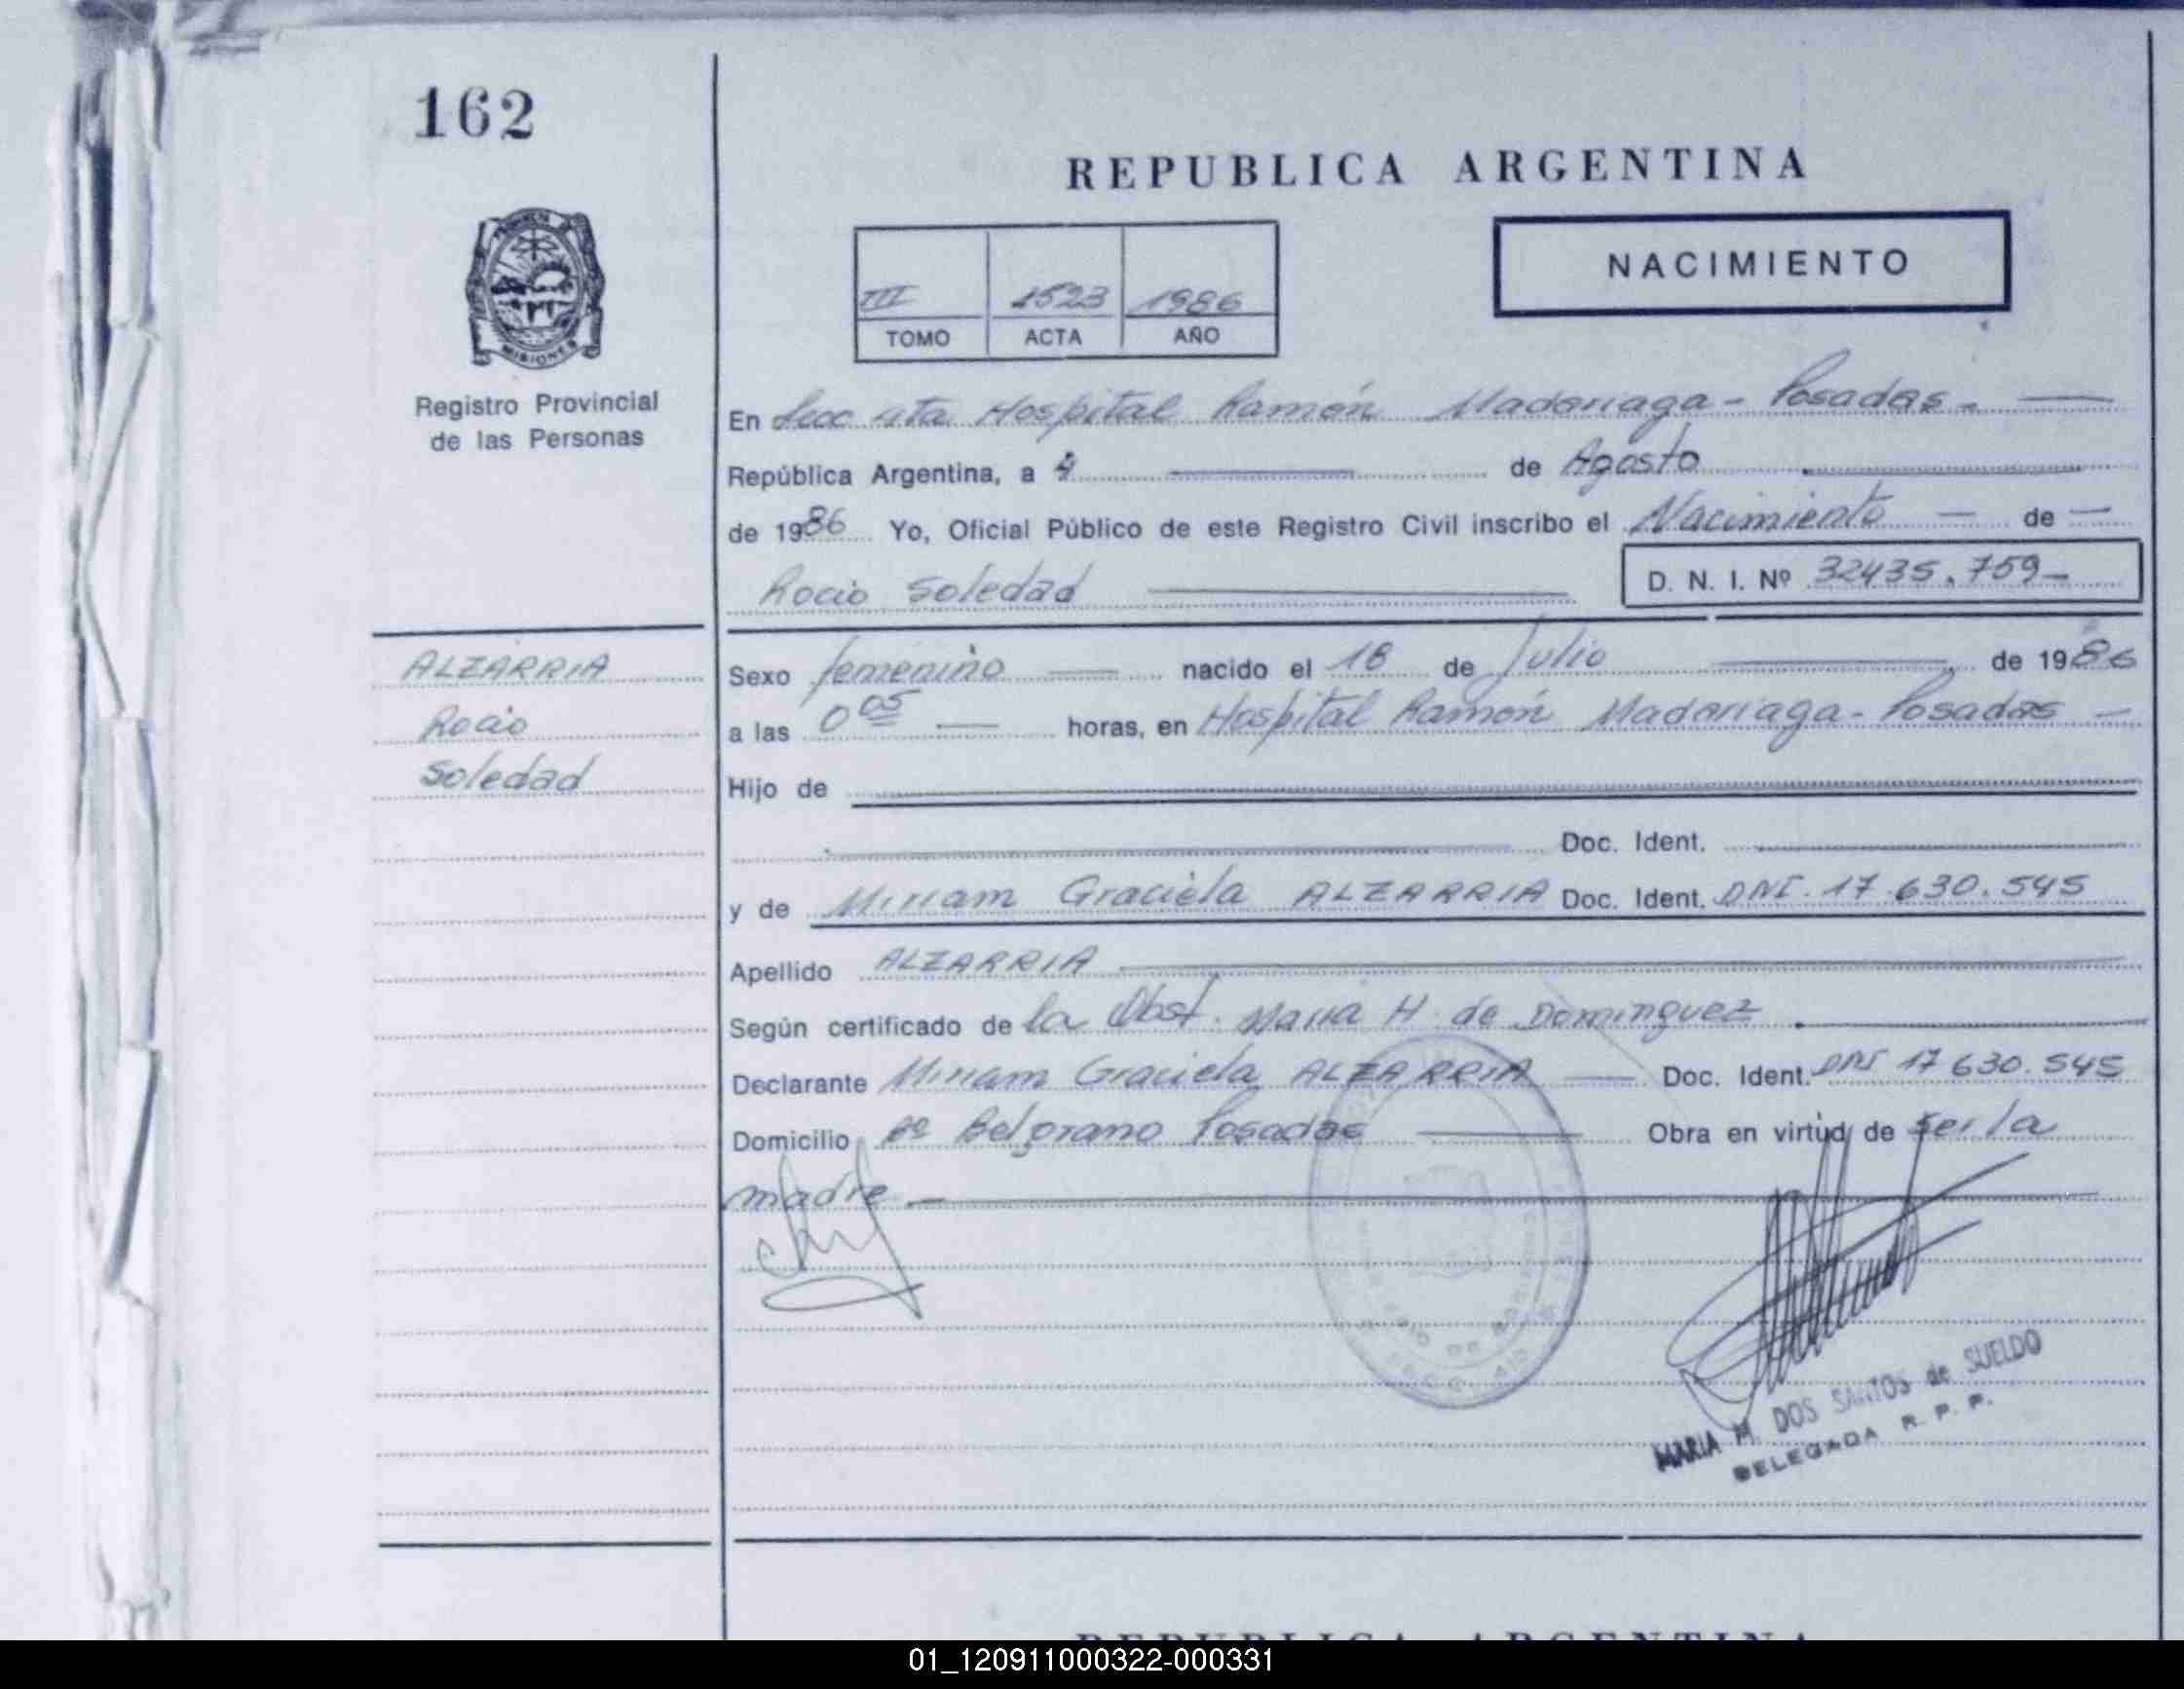 162
REPUBLICA ARGENTINA
NACIMIENTO
III 1523 1986
TOMO ACTA AÑO
MISIONES
Registro Provincial
de las Personas
En Secc 4ta Hospital Ramón Madariaga - Posadas -
República Argentina, a 4 de Agosto
de 1986 Yo, Oficial Público de este Registro Civil inscribo el Nacimiento de
Rocio Soledad D. N. I. Nº 32435.759
ALZARRIA
Rocio
Soledad
Sexo femenino nacido el 18 de Julio de 1986
a las 0 05 horas, en Hospital Ramón Madariaga - Posadas
Hijo de
Doc. Ident.
y de Miriam Graciela ALZARRIA Doc. Ident. DNI. 17.630.545
Apellido ALZARRIA
Según certificado de la Obst. Maria H. de Dominguez
Declarante Miriam Graciela ALZARRIA Doc. Ident. DNI 17 630.545
Domicilio Bº Belgrano Posadas Obra en virtud de ser la
madre
MARIA M. DOS SANTOS de SUELDO
DELEGADA R. P. P.
REPUBLICA ARGENTINA
01_120911000322-000331